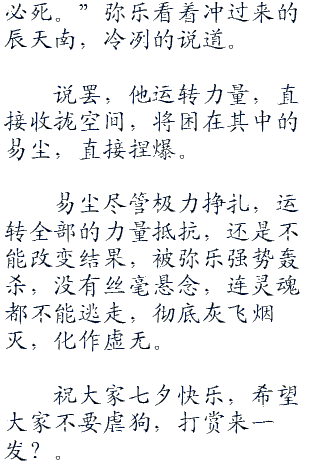 必死。”弥乐看着冲过来的
辰天南，冷冽的说道。
说罢，他运转力量，直
接收拢空间，将困在其中的
易尘，直接捏爆。
易尘尽管极力挣扎，运
转全部的力量抵抗，还是不
能改变结果，被弥乐强势轰
杀，没有丝毫悬念，连灵魂
都不能逃走，彻底灰飞烟
灭，化作虚无。
祝大家七夕快乐，希望
大家不要虐狗，打赏来一
发？。